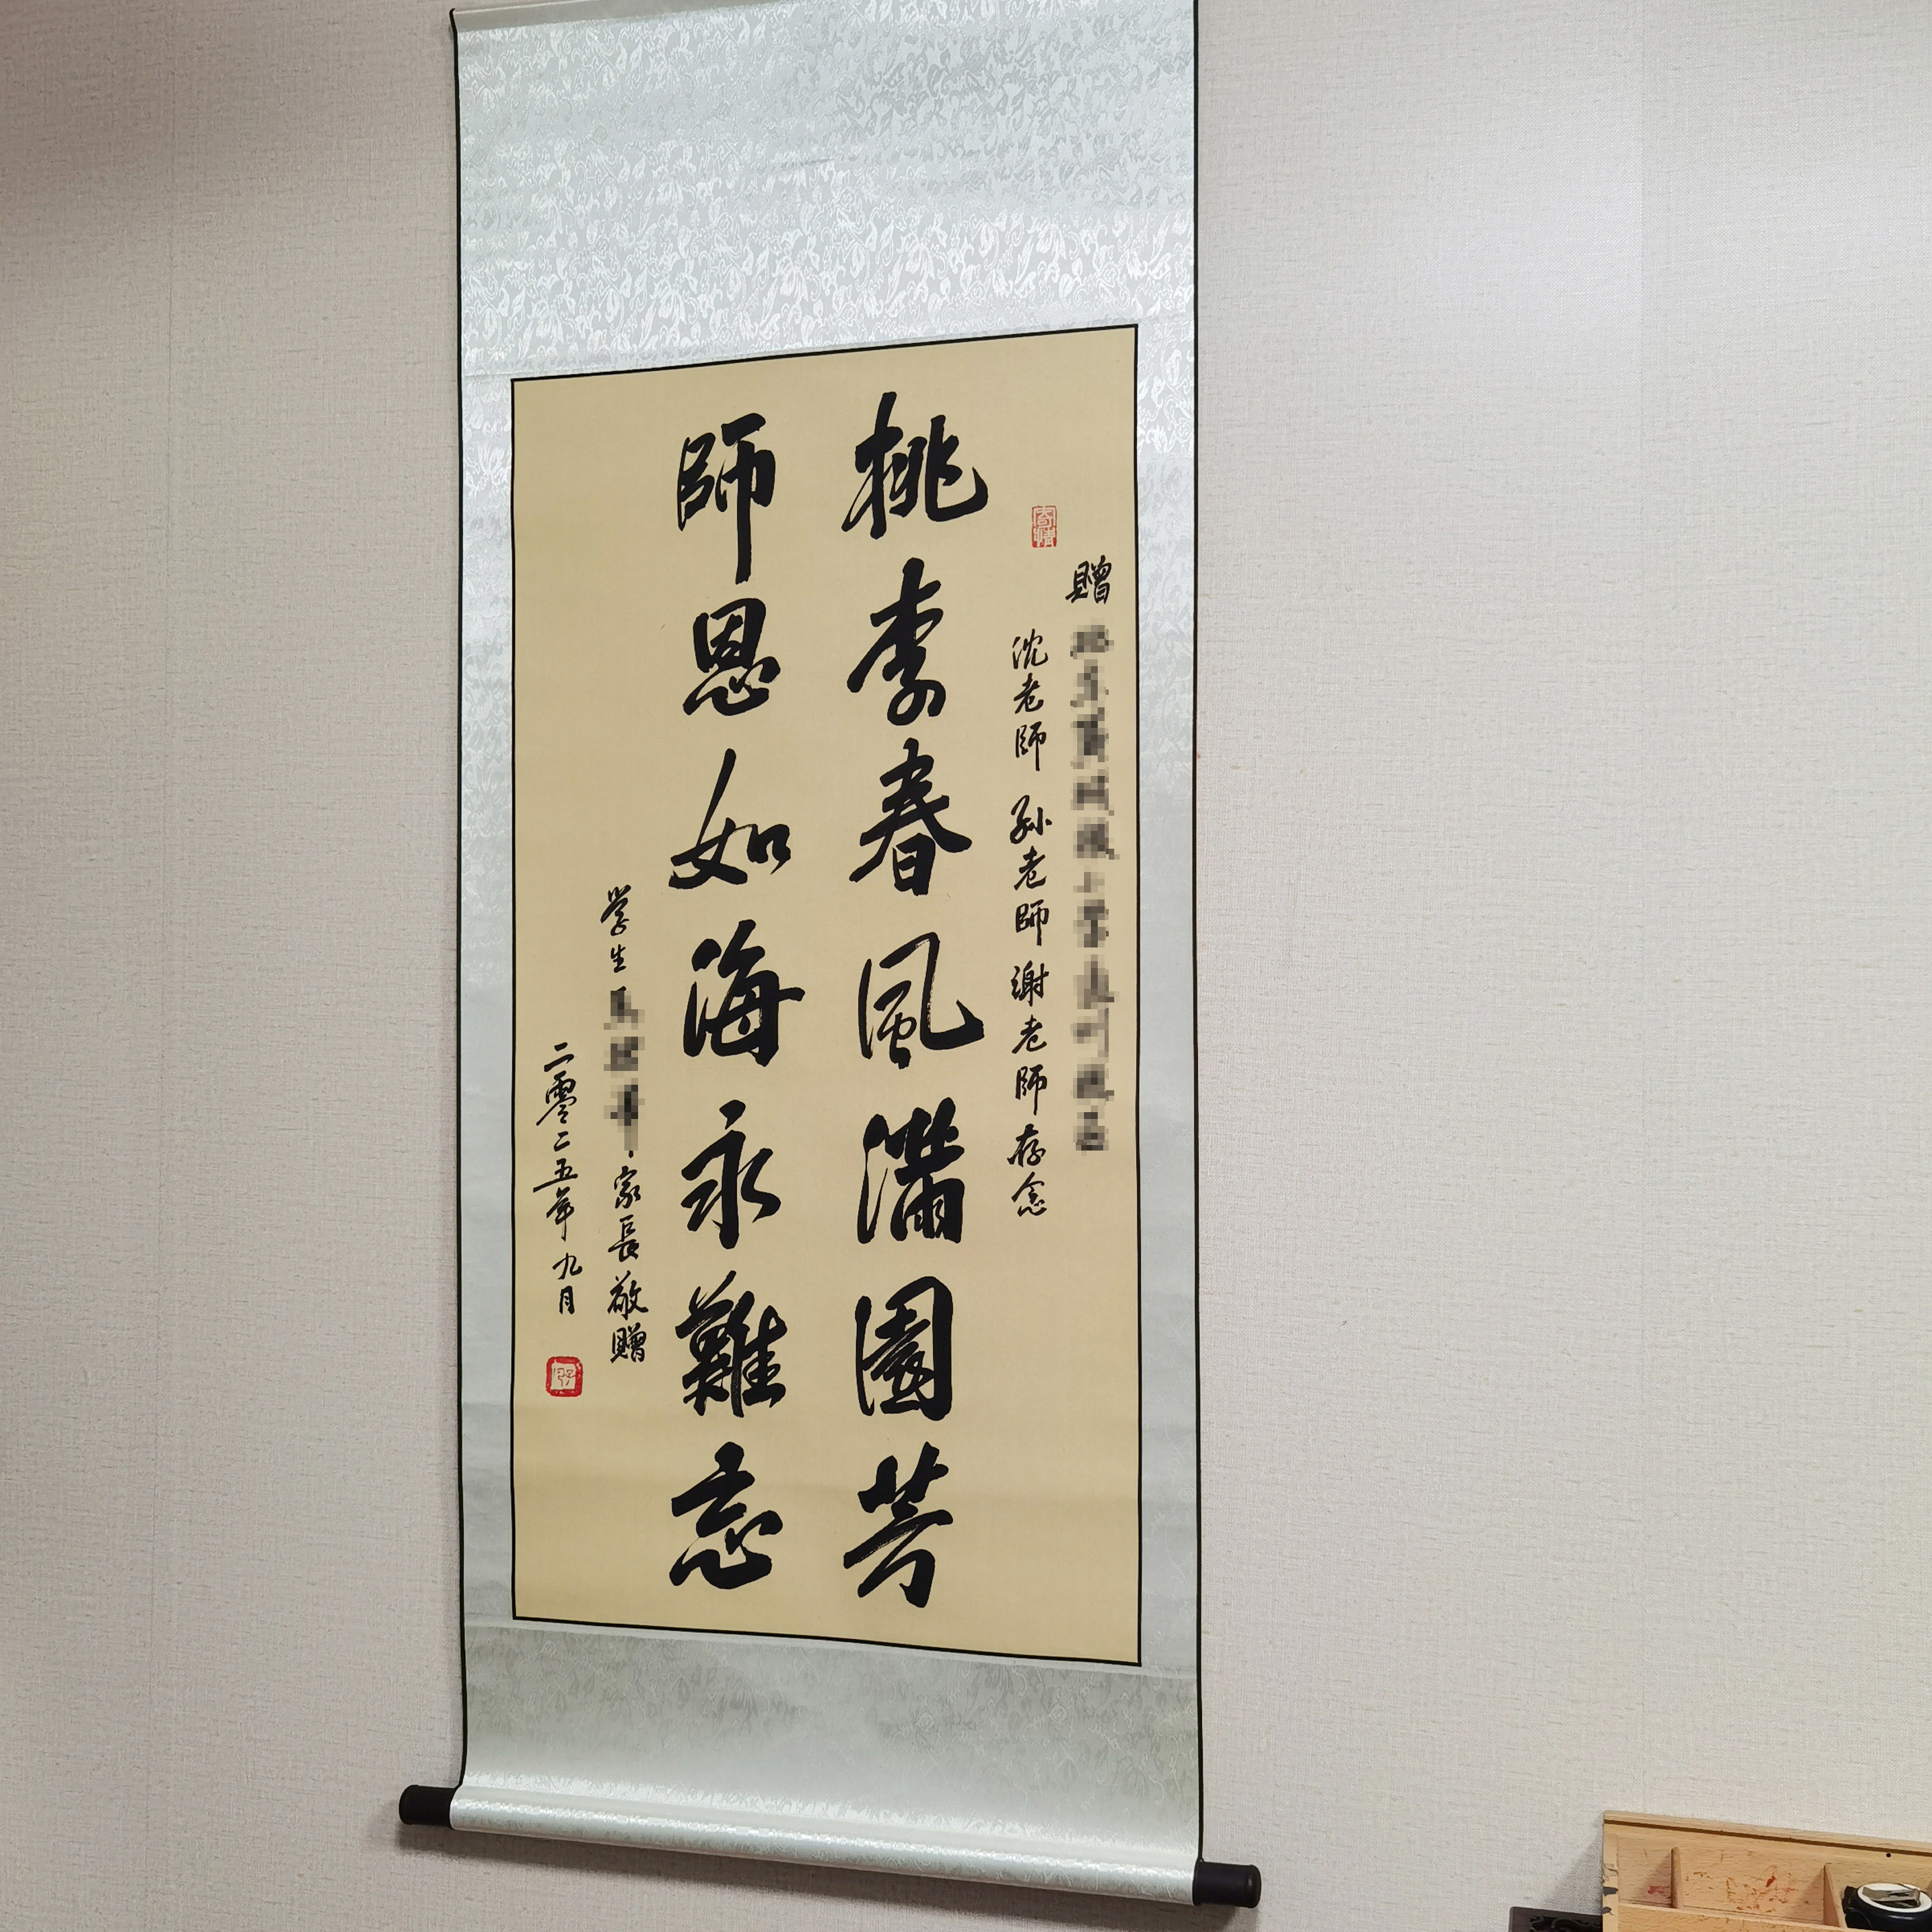 寄情
贈
沈老師 孫老師 謝老師 存念
桃李春風滿園芳
師恩如海永難忘
学生
家長敬贈
二零二五年九月